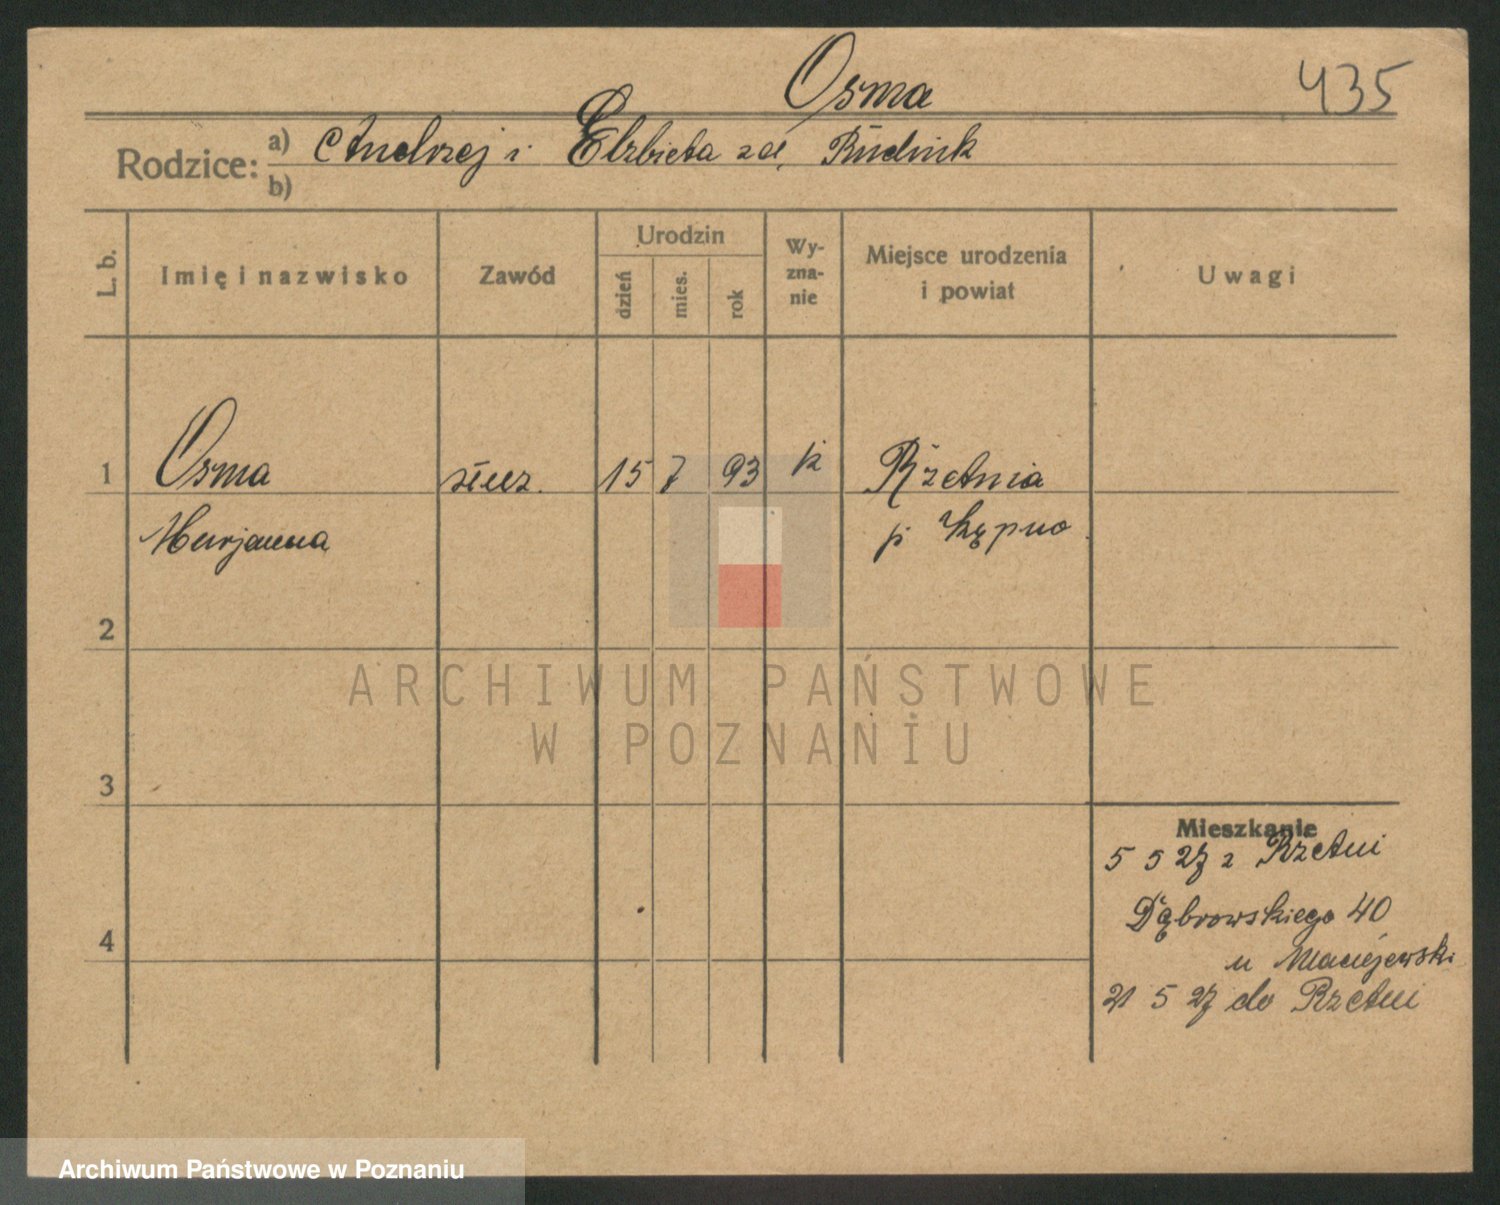 Osma
435
Rodzice: a) Andrzej i Elzbieta zd. Rudnik
b)
L. b.
Imię i nazwisko
Zawód
Urodzin
dzień
mies.
rok
Wy-
zna-
nie
Miejsce urodzenia
i powiat
Uwagi
1 Osma służ. 15 7 93 k Rzetnia
Marjanna p. Kępno
2
3
4
Mieszkanie
5 5 27 z Rzetni
Dąbrowskiego 40
u Maciejewski
21 5 27 do Rzetni
ARCHIWUM PAŃSTWOWE
W POZNANIU
Archiwum Państwowe w Poznaniu